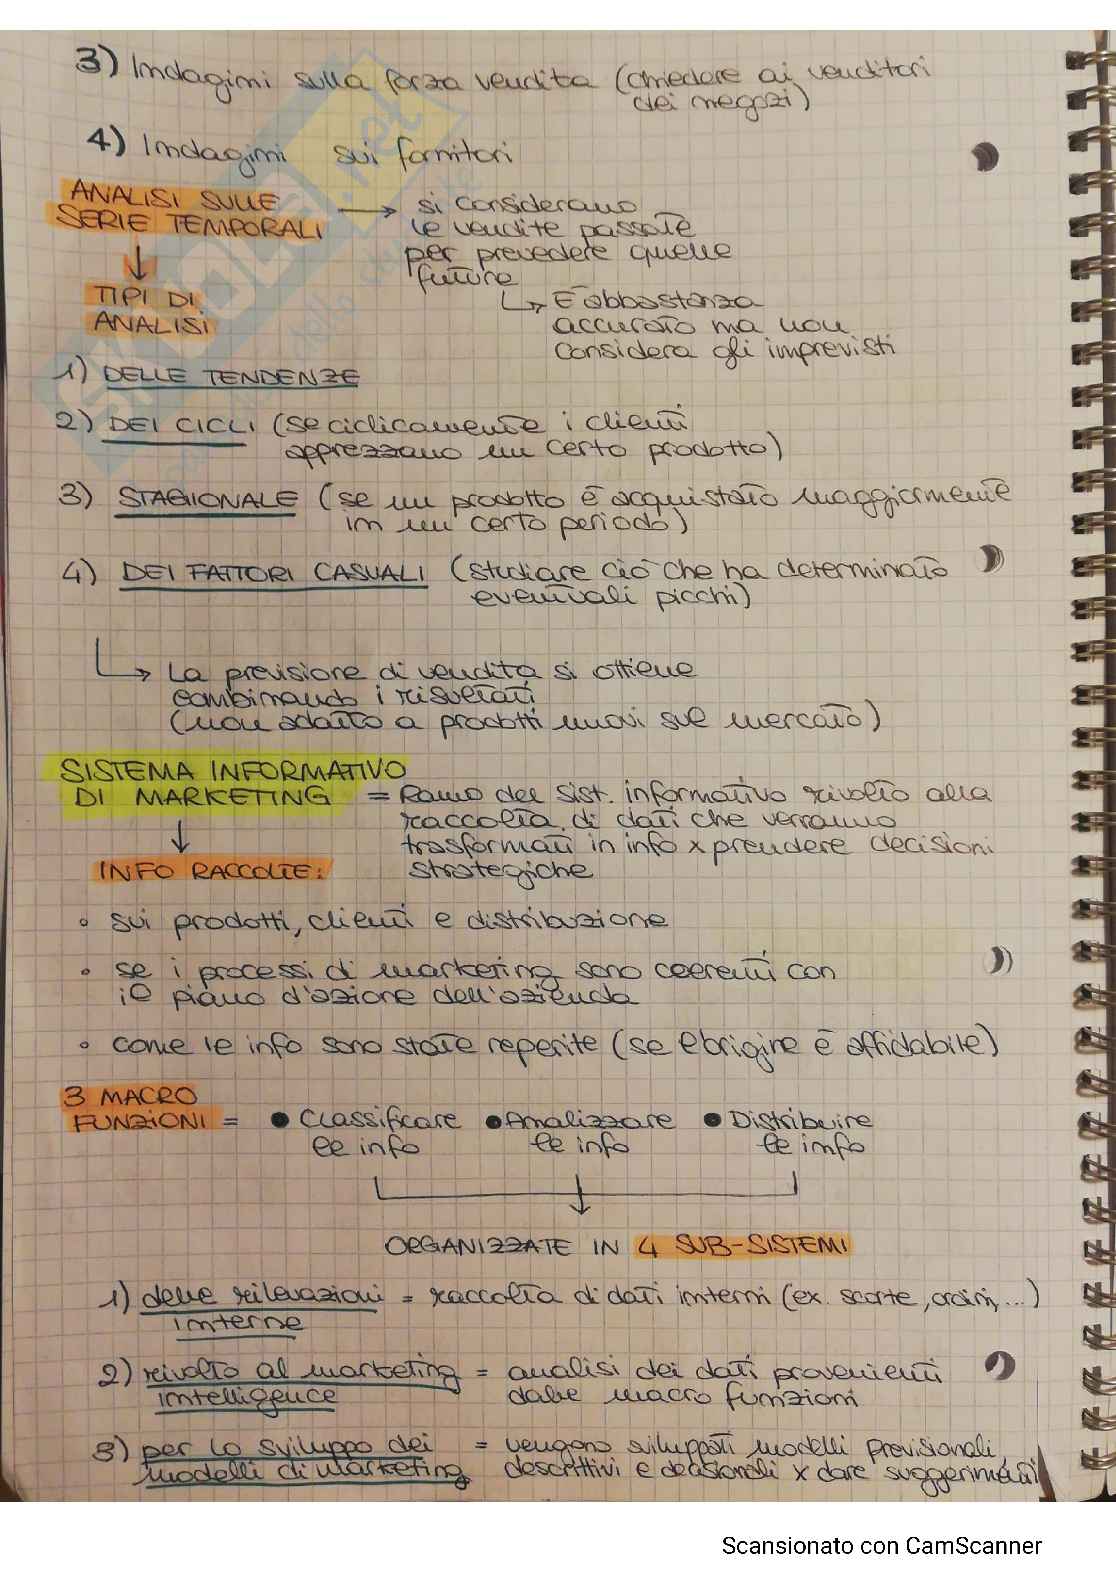 3) Indagini sulla forza vendita (chiedere ai venditori
dei negozi)
4) Indagini sui fornitori
ANALISI SULLE
SERIE TEMPORALI → si considerano
le vendite passate
per prevedere quelle
future
↳ È abbastanza
accurato ma non
considera gli imprevisti
↓
TIPI DI
ANALISI
1) DELLE TENDENZE
2) DEI CICLI (se ciclicamente i clienti
apprezzano un certo prodotto)
3) STAGIONALE (se un prodotto è acquistato maggiormente
in un certo periodo)
4) DEI FATTORI CASUALI (studiare ciò che ha determinato
eventuali picchi)
↳ La previsione di vendita si ottiene
combinando i risultati
(non adatto a prodotti nuovi sul mercato)
SISTEMA INFORMATIVO
DI MARKETING = Ramo del sist. informativo rivolto alla
raccolta di dati che verranno
trasformati in info x prendere decisioni
strategiche
↓
INFO RACCOLTE:
◦ sui prodotti, clienti e distribuzione
◦ se i processi di marketing sono coerenti con
il piano d'azione dell'azienda
◦ come le info sono state reperite (se l'origine è affidabile)
3 MACRO
FUNZIONI = • Classificare • Analizzare • Distribuire
le info le info le info
ORGANIZZATE IN 4 SUB-SISTEMI
1) delle rilevazioni = raccolta di dati interni (ex. scorte, ordini, ...)
interne
2) rivolto al marketing = analisi dei dati provenienti
intelligence dalle macro funzioni
3) per lo sviluppo dei = vengono sviluppati modelli previsionali,
modelli di marketing descrittivi e decisionali x dare suggerimenti
Scansionato con CamScanner